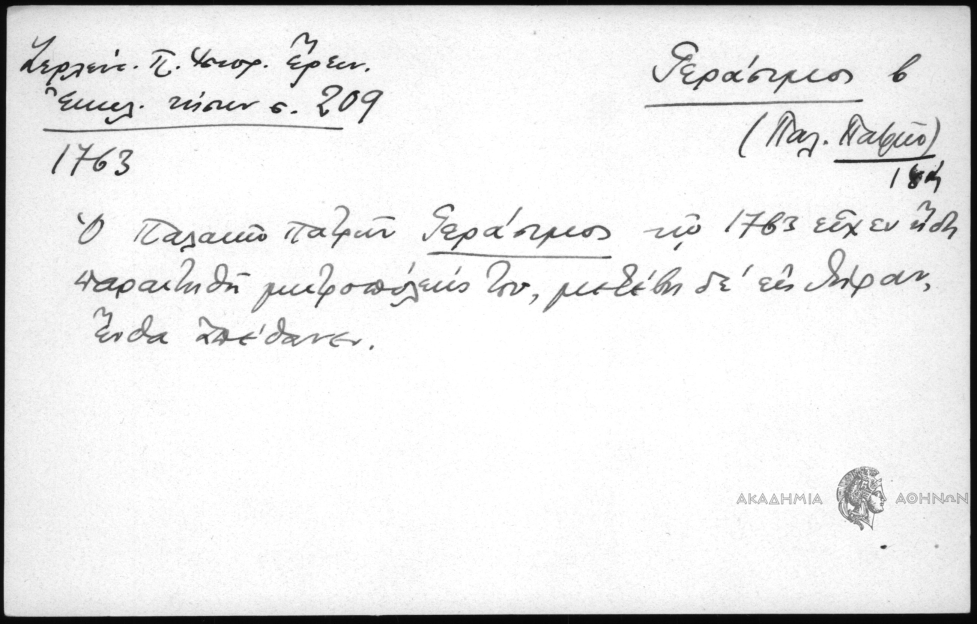 Ζερλέντ. Π. Ἱστορ. Ἔρευν.
Ἐκκλ. νήσων σ. 209
1763
Γεράσιμος β
(Παλ. Πατρῶν)
Ὁ Παλαιῶν Πατρῶν Γεράσιμος τῷ 1763 εἶχεν ἤδη
παραιτηθῆ μητροπόλεώς του, μετέβη δέ εἰς Θήραν,
ἔνθα ἀπέθανεν.
ΑΚΑΔΗΜΙΑ ΑΘΗΝΩΝ